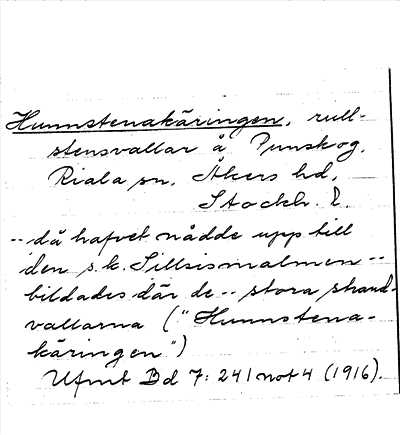 Hunnstenakäringen, rull-
stensvallar å Punskog,
Riala sn, Åkers hd,
Stockh. l.
-- då hafvet nådde upp till
den s.k. Sillsismalmen --
bildades där de -- stora strand-
vallarna ("Hunnstena-
käringen")
Ufmt Bd 7: 241 not 4 (1916).